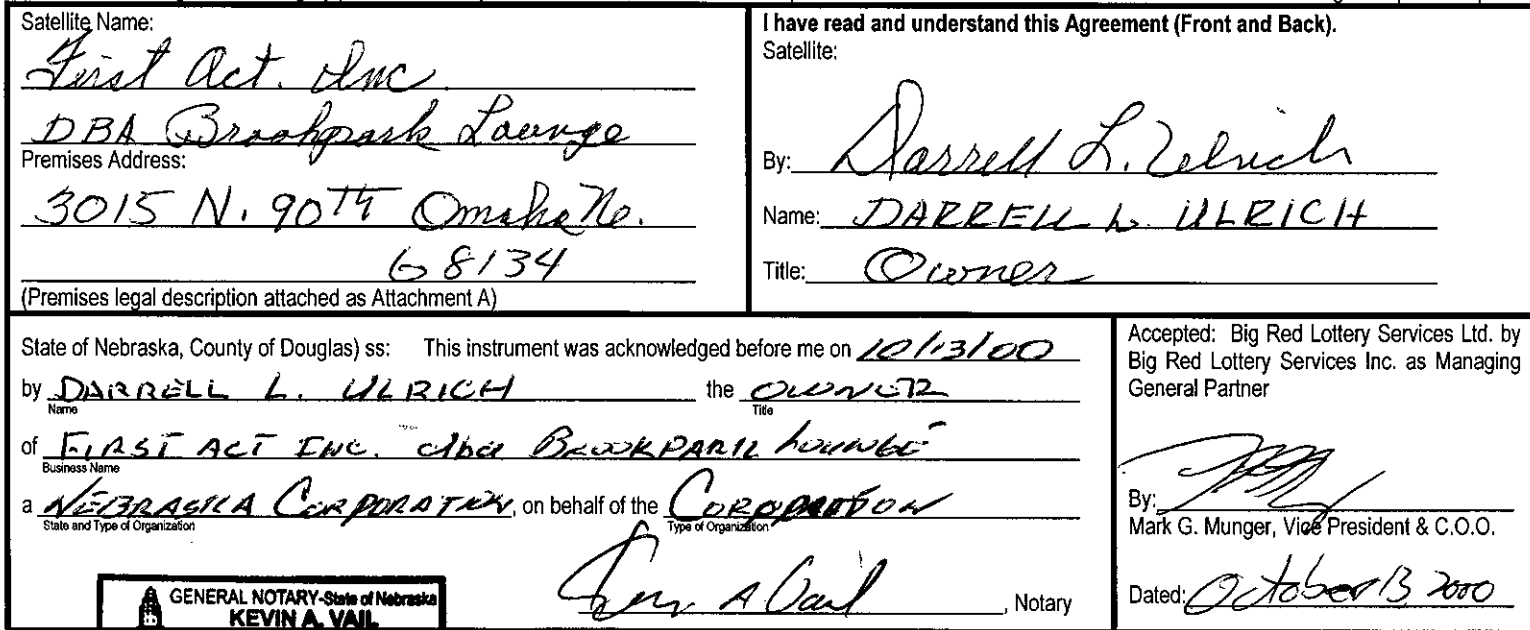 Satellite Name:
First Act. Inc
DBA Brookpark Lounge
Premises Address:
3015 N. 90TH Omaha Ne.
68134
(Premises legal description attached as Attachment A)
I have read and understand this Agreement (Front and Back).
Satellite:
By: Darrell L. Ulrich
Name: DARRELL L. ULRICH
Title: Owner
State of Nebraska, County of Douglas) ss: This instrument was acknowledged before me on 10/13/00
by DARRELL L. ULRICH the OWNER
Name Title
of FIRST ACT INC. dba BROOKPARK LOUNGE
Business Name
a NEBRASKA CORPORATION, on behalf of the CORPORATION
State and Type of Organization Type of Organization
GENERAL NOTARY-State of Nebraska
KEVIN A. VAIL
A Vail, Notary
Accepted: Big Red Lottery Services Ltd. by
Big Red Lottery Services Inc. as Managing
General Partner
By:
Mark G. Munger, Vice President & C.O.O.
Dated: October 13, 2000